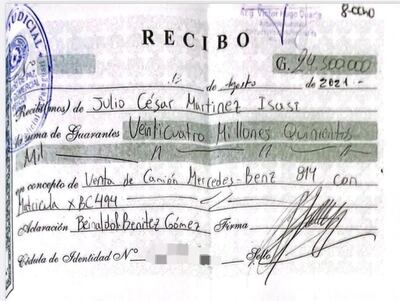 Arq. Victor Hugo
JUDICIAL
RECIBO
G. 24.500.000
12 Agosto de 2021.-
Recibí(mos) de Julio César Martinez Isasi
la suma de Guaraníes Venticuatro Millones Quinientos
Mil — " — " — "
en concepto de Venta de Camión Mercedes-Benz 814 con
Matricula XBC494
Aclaración Beinaldo Benitez Gómez Firma
Cédula de Identidad Nº Sello